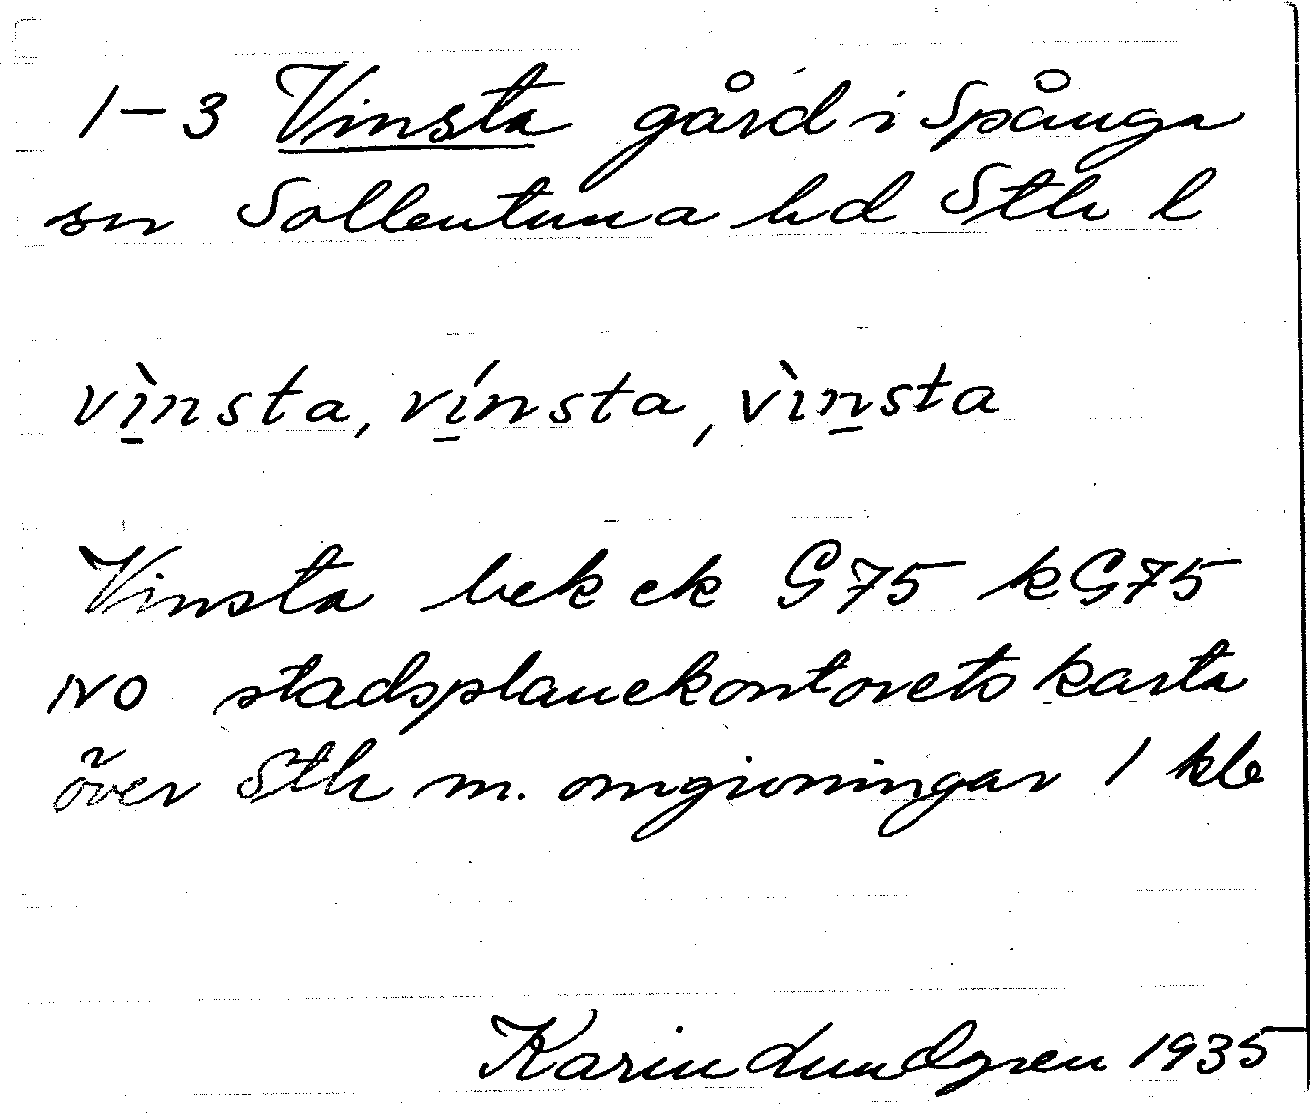 1–3 Vinsta gård i Spånga
sn Sollentuna hd Sth l
vı̠̀nsta, vı̠́nsta, vı̀n̠sta
Vinsta bek ek G75 kG75
NO stadsplanekontorets karta
över Sth m. omgivningar 1 kle
Karin Lundgren 1935